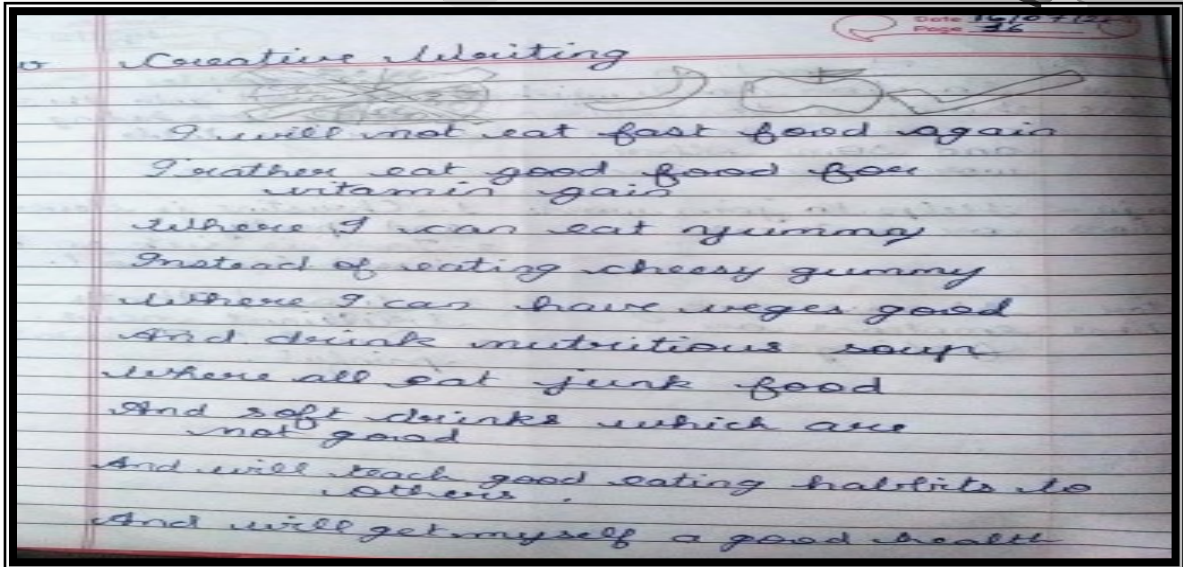 Date 16/07/2
Page 36
Creative Writing
I will not eat fast food again
I rather eat good food for
vitamin gain
Where I can eat yummy
Instead of eating cheesy gummy
Where I can have veges good
And drink nutritious soup
Where all eat junk food
And soft drinks which are
not good
And will teach good eating habbits to
others.
And will get myself a good health